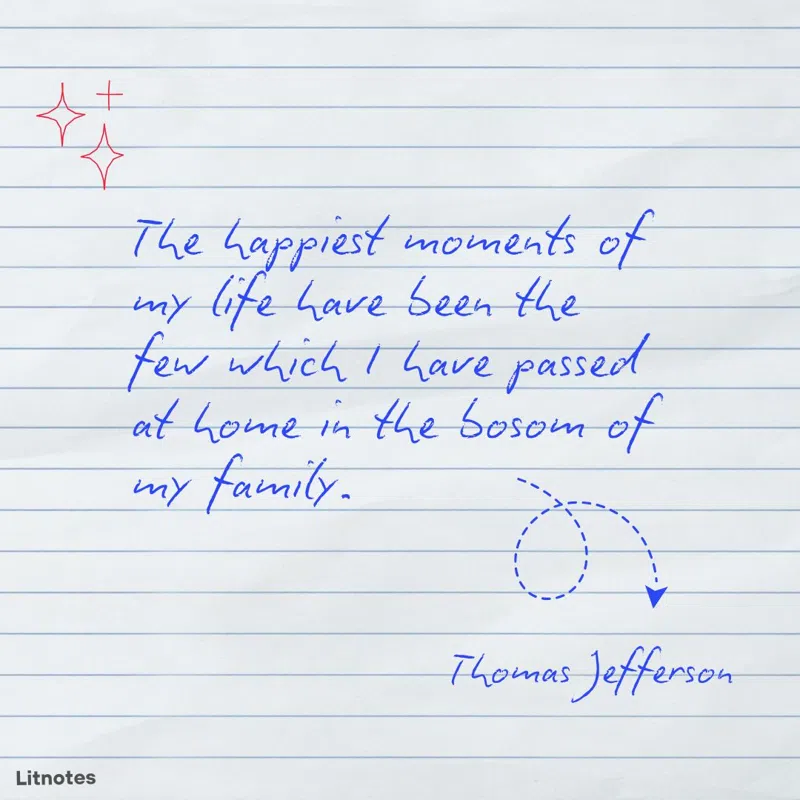 The happiest moments of
my life have been the
few which I have passed
at home in the bosom of
my family.
Thomas Jefferson
Litnotes